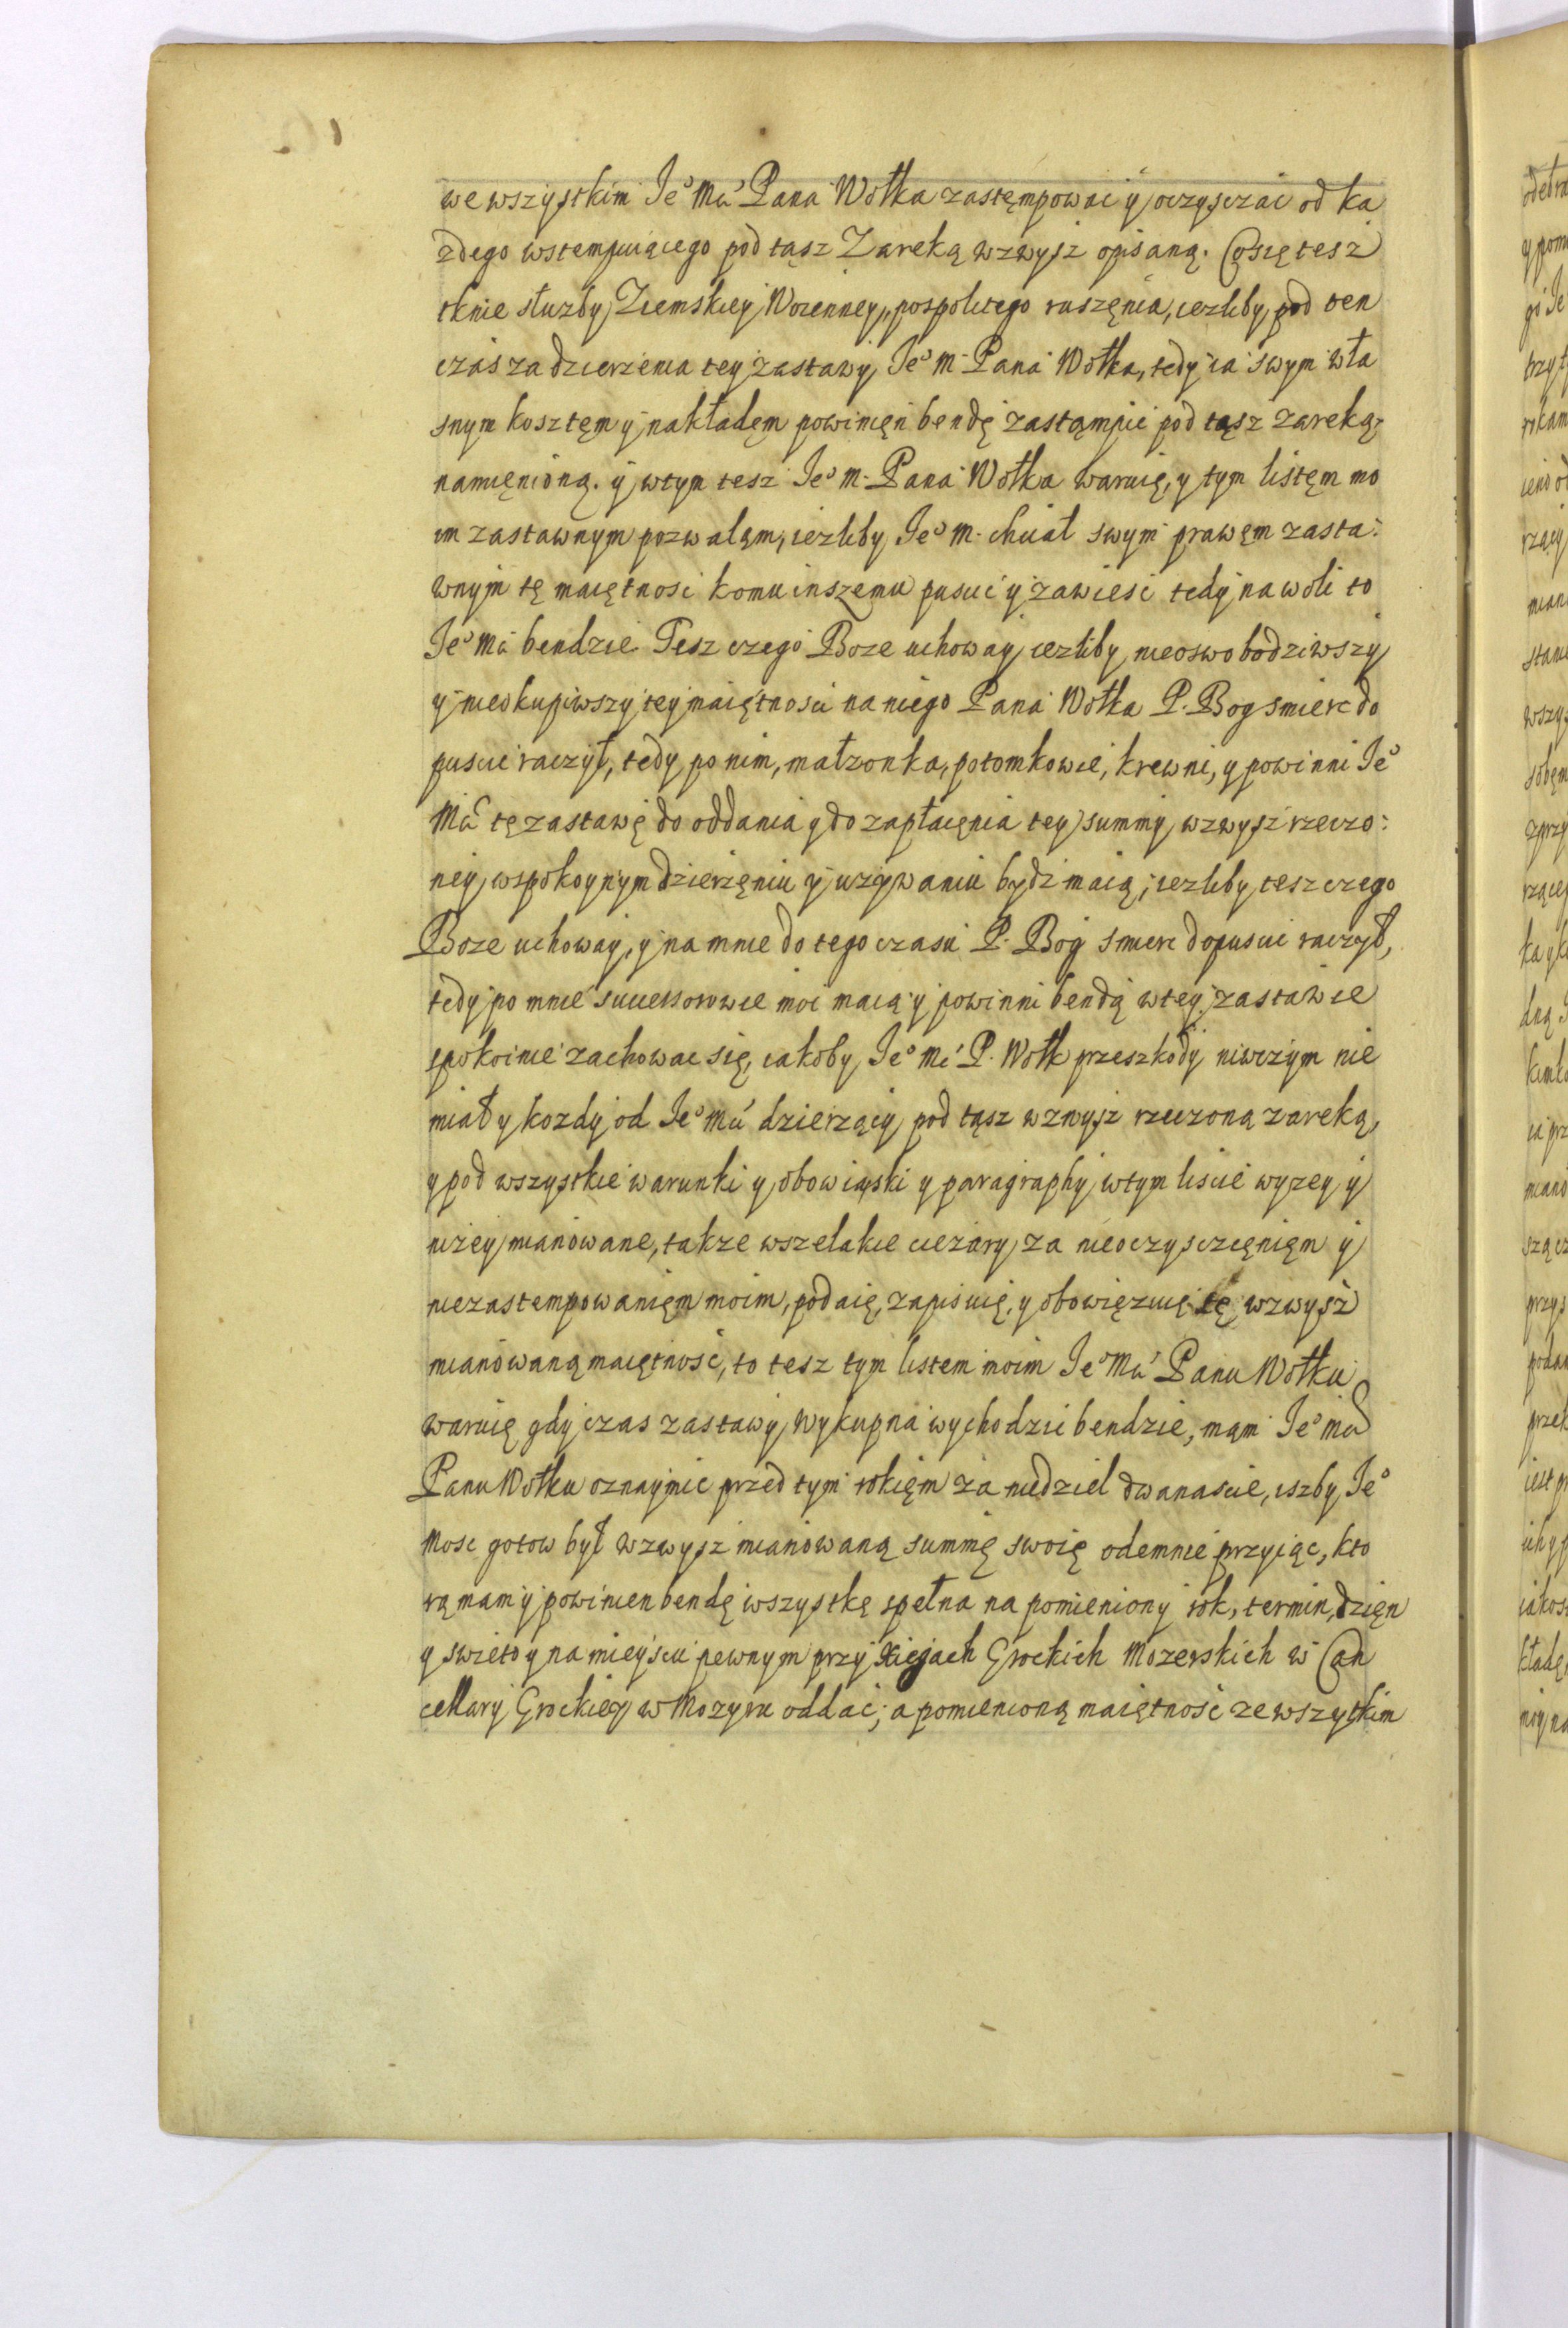 we wszystkim Je° Mci Pana Wołka zastęmpowac y oczysczac od ka
zdego wstempuiącego pod tąsz Zaręką wzwysz opisaną. Co się tesz
tknie słuzby Ziemskiey Woienney, pospolitego ruszęnia, iezliby pod ten
czas za dzierzenia tey zastawy Je° M. Pana Wołka, tedy ia swym wła
snym kosztęm y nakładęm powinięn bendę zastąmpic pod tąsz zareką
namięnioną. y wtym tesz Je° M. Pana Wołka waruię, y tym listęm mo
im zastawnym pozwaląm, iezliby Je° M. chciał swym prawęm zasta:
wnym tę maiętnosc komu inszemu puscic y zawiesc tedy na woli to
Je° Mci bendzie Tesz czego Boze uchoway iezliby nieoswobodziwszy
y nieokupiwszy tey maiętnosci na niego Pana Wołka P. Bog smierc do
puscic raczył, tedy po nim, małzonka, potomkowie, krewni, y powinni Je°
Mci tę zastawę do oddania y do zapłacęnia tey summy wzwysz rzeczo:
ney wspokoynym dzierzęniu y uzywaniu bydz maią; iezliby tesz czego
Boze uchoway, y na mnie do tego czasu P. Bog smierc dopuscic raczył,
tedy po mnie successorowie moi maią y powinni bendą wtey zastawie
spokoinie zachowac się, iakoby Je° Mc P. Wołk przeszkody niwczym nie
miał y kozdy od Je° Mci dzierzący pod tąsz wzwysz rzeczoną zareką,
y pod wszystkie warunki y obowiąski y paragraphy wtym liscie wyzey y
nizey mianowane, takze wszelakie ciezary za nieoczysczęnięm y
niezastempowanięm moim, podaię, zapisuię, y obowięzuię tę wzwysz
mianowaną maiętnosc, to tesz tym listem moim Je° Mci Panu Wołku
waruię gdy czas zastawy wykupna wychodzic bendzie, mąm Je° Mci
Panu Wołku oznaymic przed tym rokięm za niedziel dwanascie, iszby Je°
Mosc gotow był wzwysz mianowaną summę swoię odemnie przyiąc, kto
rą mam y powinien bendę wszystkę spełna na pomieniony rok, termin, dzięn
y swieto y na mieyscu pewnym przy xięgach Grockich Mozerskich w Can
cellary Grockiey w Mozyru oddac; a pomienioną maiętnosc ze wszytkim